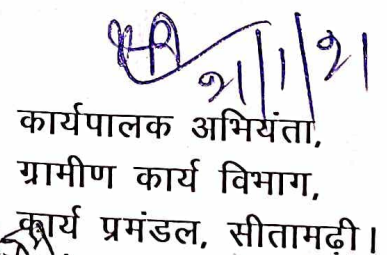 21/1/21
कार्यपालक अभियंता,
ग्रामीण कार्य विभाग,
कार्य प्रमंडल, सीतामढ़ी।